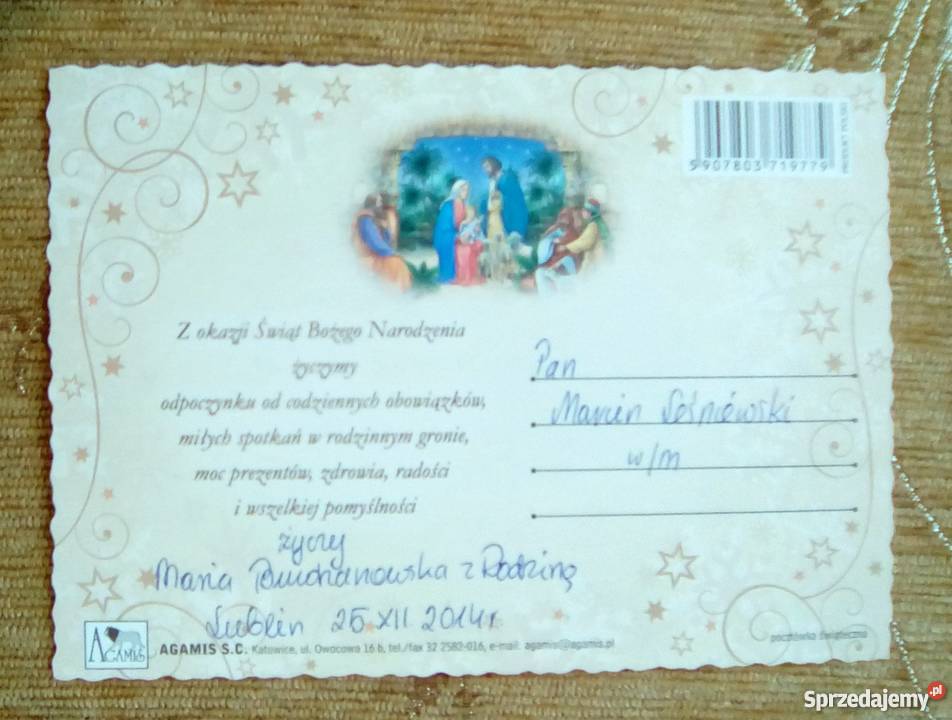 5907803 719779
Z okazji Świąt Bożego Narodzenia
życzymy
odpoczynku od codziennych obowiązków,
miłych spotkań w rodzinnym gronie,
moc prezentów, zdrowia, radości
i wszelkiej pomyślności
życzy
Maria z Rodziną
Lublin 25 XII 2014r.
Pan
Marcin Leśniewski
w/m
AGAMIS
AGAMIS S.C. Katowice, ul. Owocowa 16 b, tel./fax 32 2582-016, e-mail: agamis@agamis.pl
pocztówka świąteczna
Sprzedajemy.pl